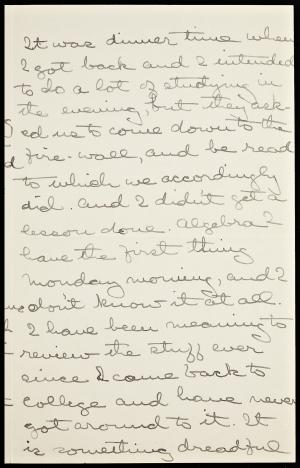 It was dinner time when
I got back and I intended
to do a lot of studying in
the evening, but they ask-
ed us to come down to the
fire-wall, and be read
to which we accordingly
did. And I didn't get a
lesson done. Algebra I
have the first thing
Monday morning, and I
don't know it at all.
I have been meaning to
review the stuff ever
since I came back to
college and have never
got around to it. It
is something dreadful